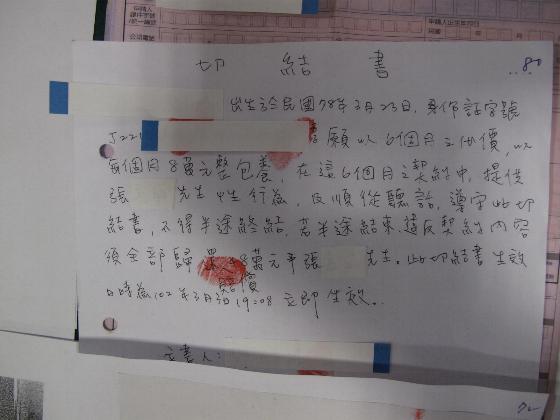 申請人
公司電話
申請人出生年月日
切結書
80
出生於民國78年3月23日,身份證字號
J221 願以6個月之代價,以
每個月8萬元整包養,在這6個月之契約中,提供
張 先生 性行為,及順從聽話,遵守此切
結書,不得半途終結,若半途結束,違反契約內容
須全部歸 8萬元予張 先生。此切結書生效
賠償
日時為102年3月3日19:08立即生效。
立書人: